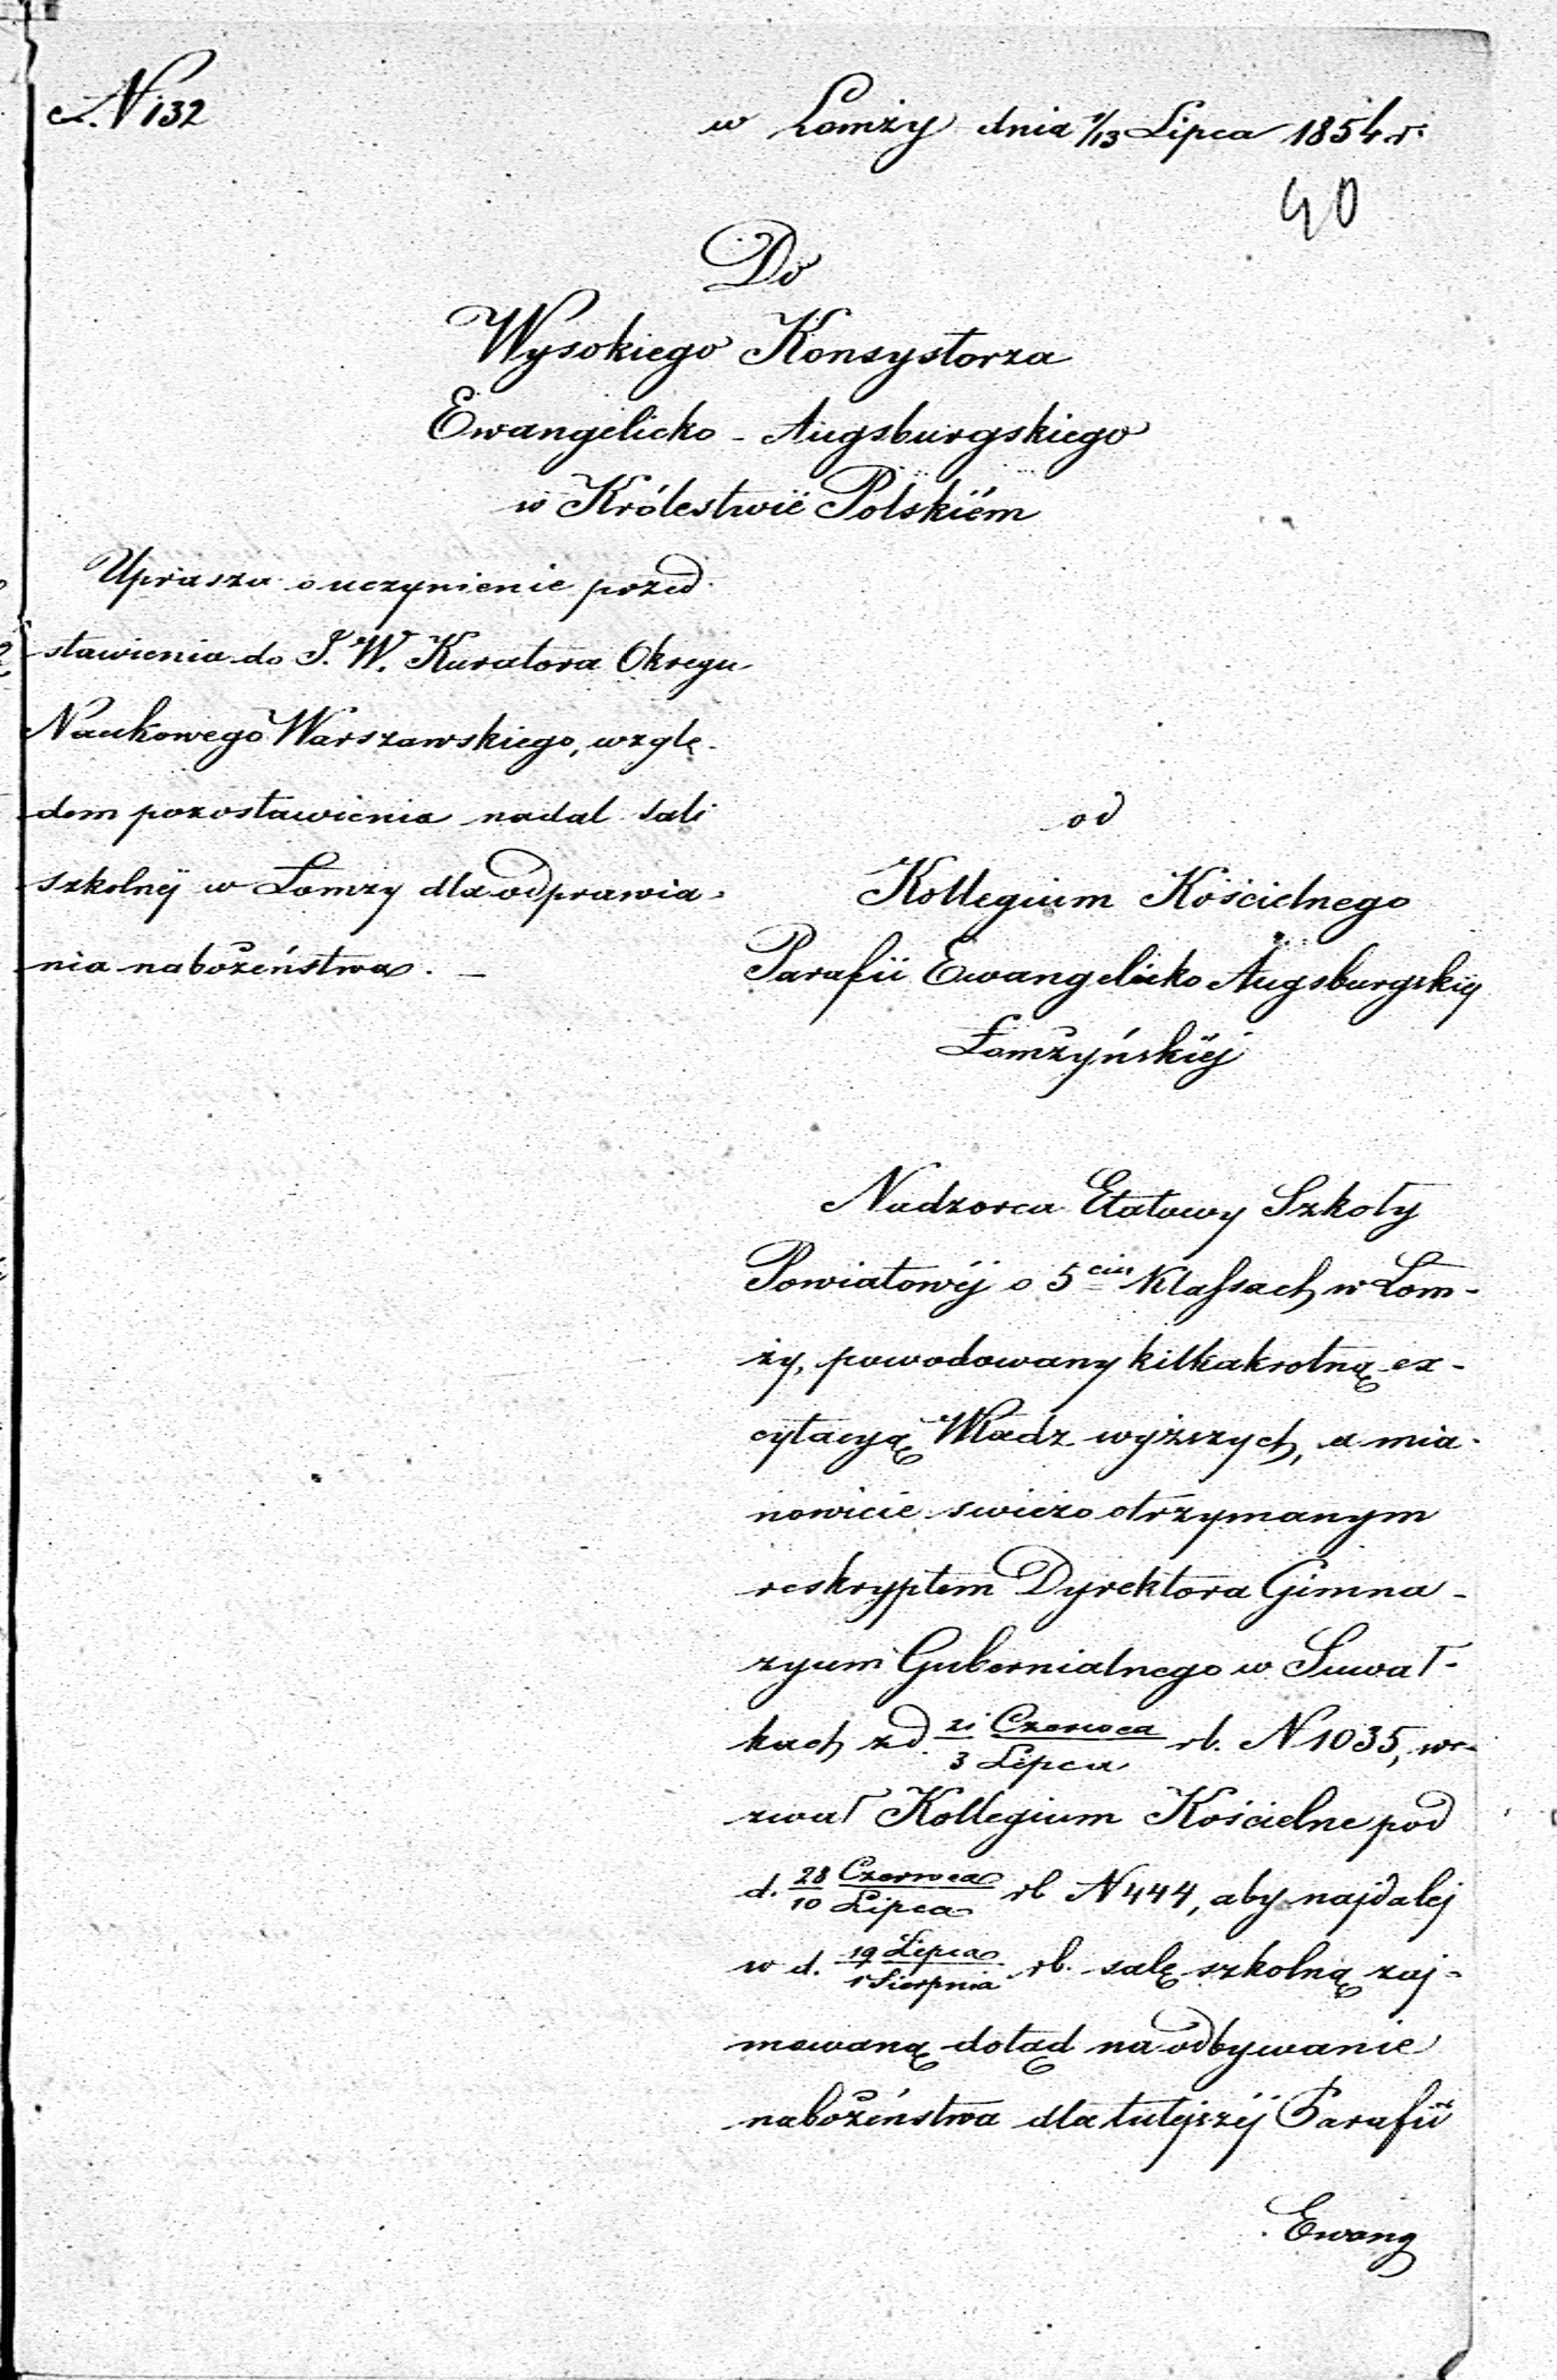 N 132
w Łomży dnia 1/13 Lipca 1854 r.
40
Do
Wysokiego Konsystorza
Ewangelicko - Augsburgskiego
w Królestwie Polskiém
Uprasza o uczynienie przed
stawienia do J. W. Kuratora Okręgu
Naukowego Warszawskiego, wzglę-
dem pozostawienia nadal sali
szkolnéj w Łomży dla odprawia-
nia nabożeństwa. —
od
Kollegium Kościelnego
Parafii Ewangelicko Augsburgskiéj
Łomżyńskiéj
Nadzorca Etatowy Szkoły
Powiatowéj o 5ciu Klassach w Łom-
ży, powodowany kilkakrotną ex-
cytacyą Władz wyższych, a mia-
nowicie swieżo otrzymanym
reskryptem Dyrektora Gimna-
zyum Gubernialnego w Suwał-
kach z d. 21 Czerwca / 3 Lipca rb. N 1035, we-
zwał Kollegium Kościelne pod
d. 28 Czerwca / 10 Lipca rb N 444, aby najdaléj
w d. 19 Lipca / 1 Sierpnia rb. salę szkolną zaj-
mowaną dotąd na odbywanie
nabożeństwa dla tutejszéj Parafii
Ewang